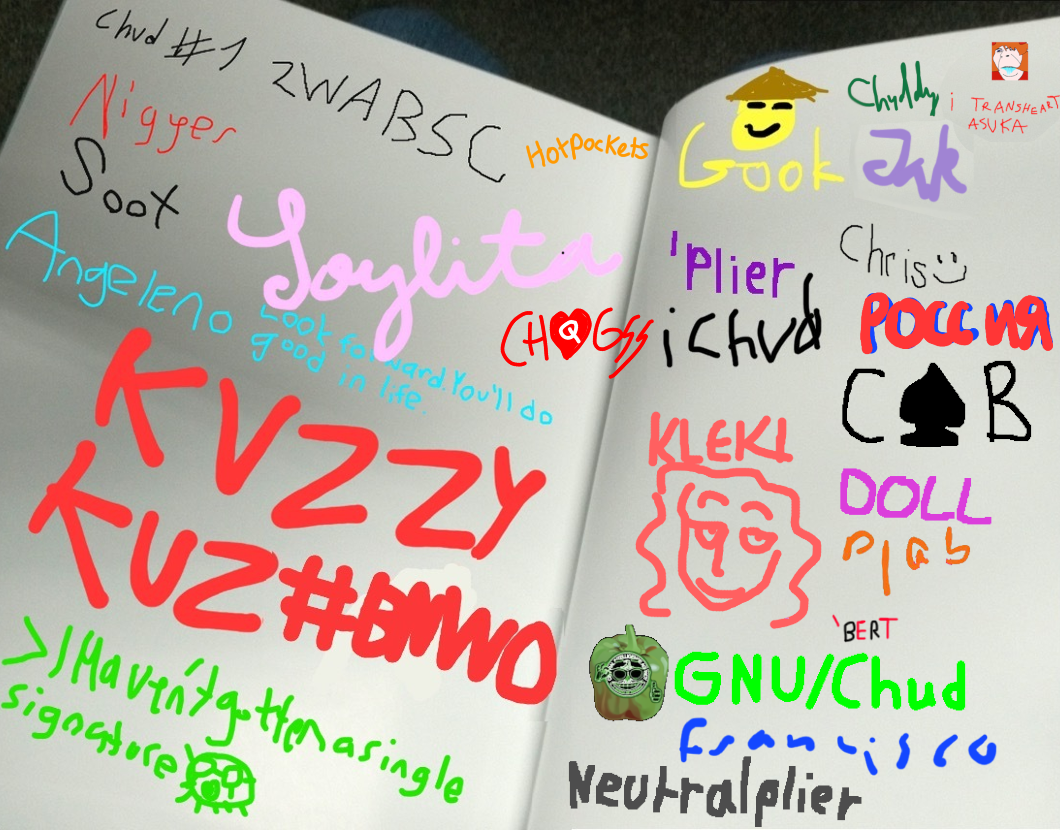 chud #1
ZWABSC
Nigger
Soot
Hotpockets
Soylita
Angeleno
Look forward. You'll do
good in life.
CH Q Gss
KVZZY
KUZ #BMWO
>I Haven't gotten a single
signature
Gook
Chuddy
i TRANSHEART
ASUKA
Jak
'Plier
Chris
iChud
РОССИЯ
C♠B
KLEKI
DOLL
njab
'BERT
GNU/Chud
Francisco
Neutralplier